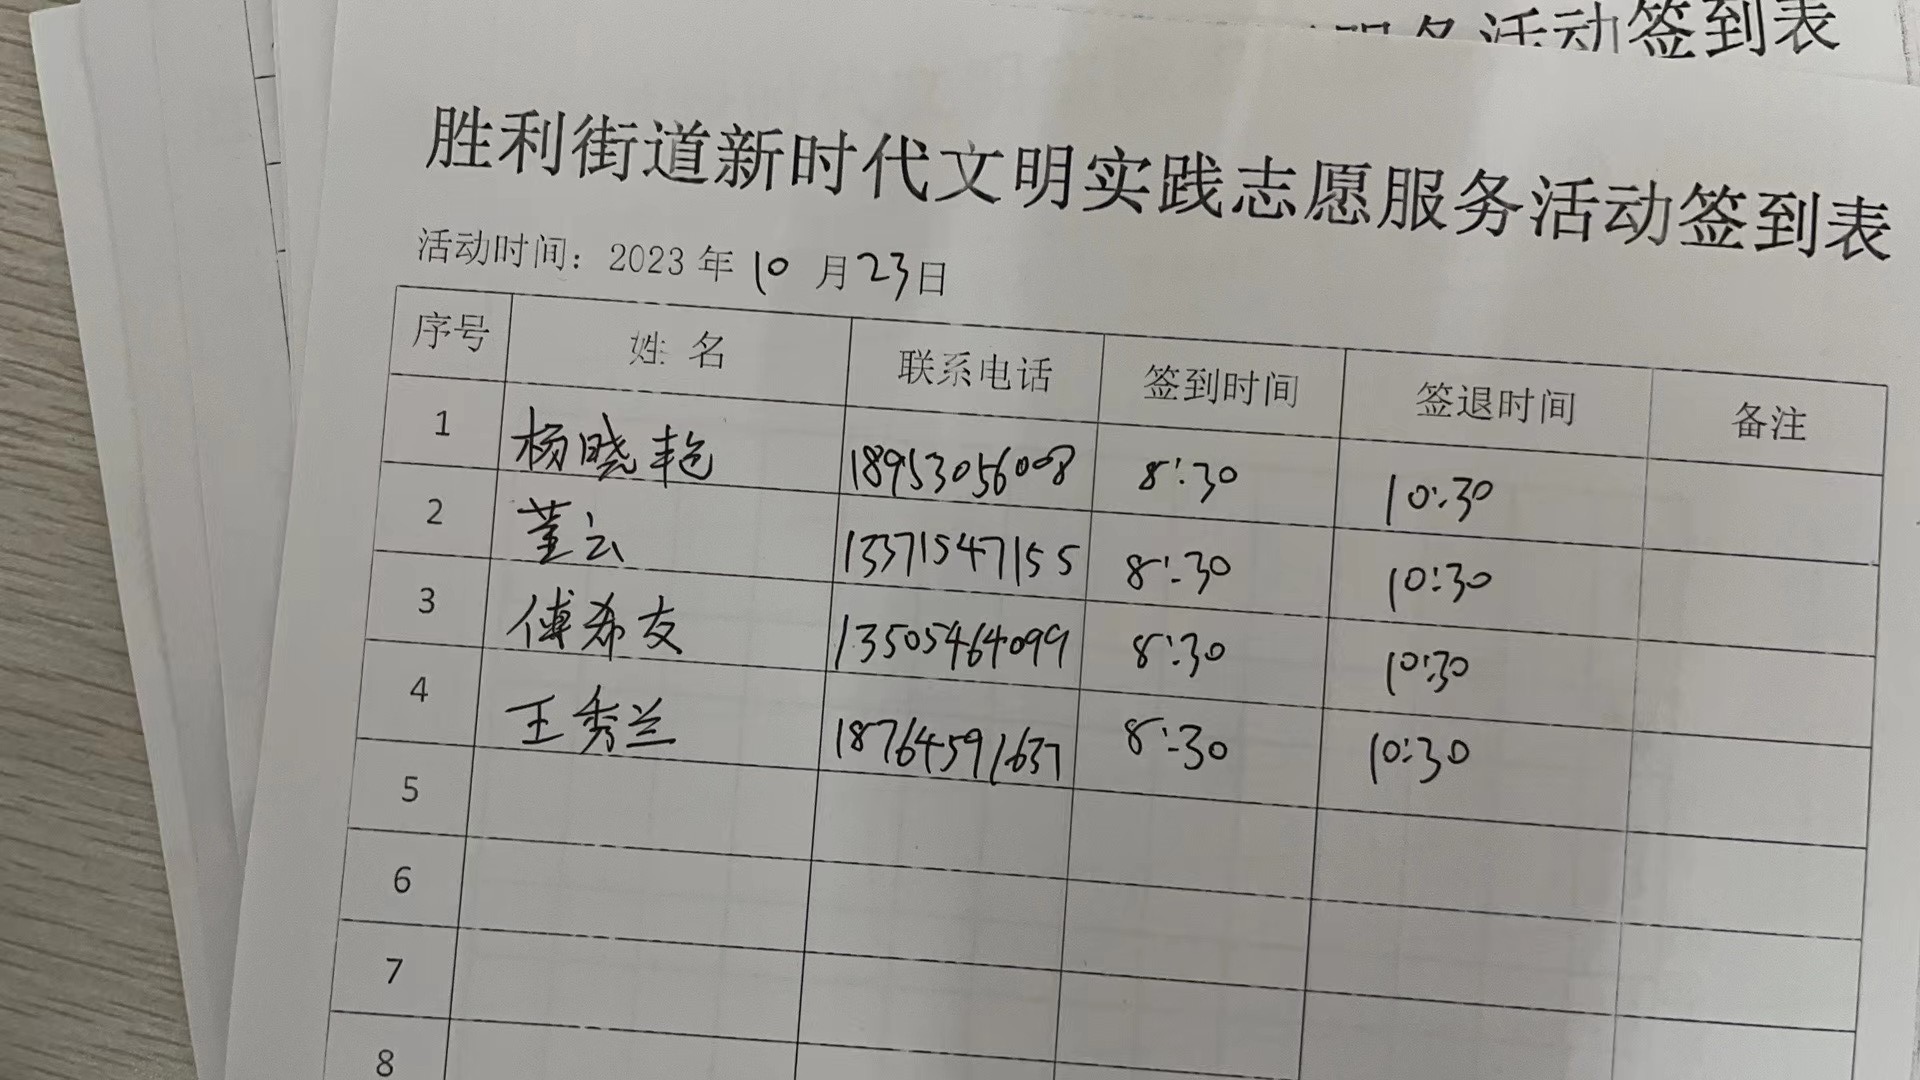 服务活动签到表
胜利街道新时代文明实践志愿服务活动签到表
活动时间：2023年10月23日
序号 姓名 联系电话 签到时间 签退时间 备注
1 杨晓艳 18953056008 8:30 10:30
2 董云 13371547155 8:30 10:30
3 傅希友 13505464099 8:30 10:30
4 王秀兰 18764591637 8:30 10:30
5
6
7
8